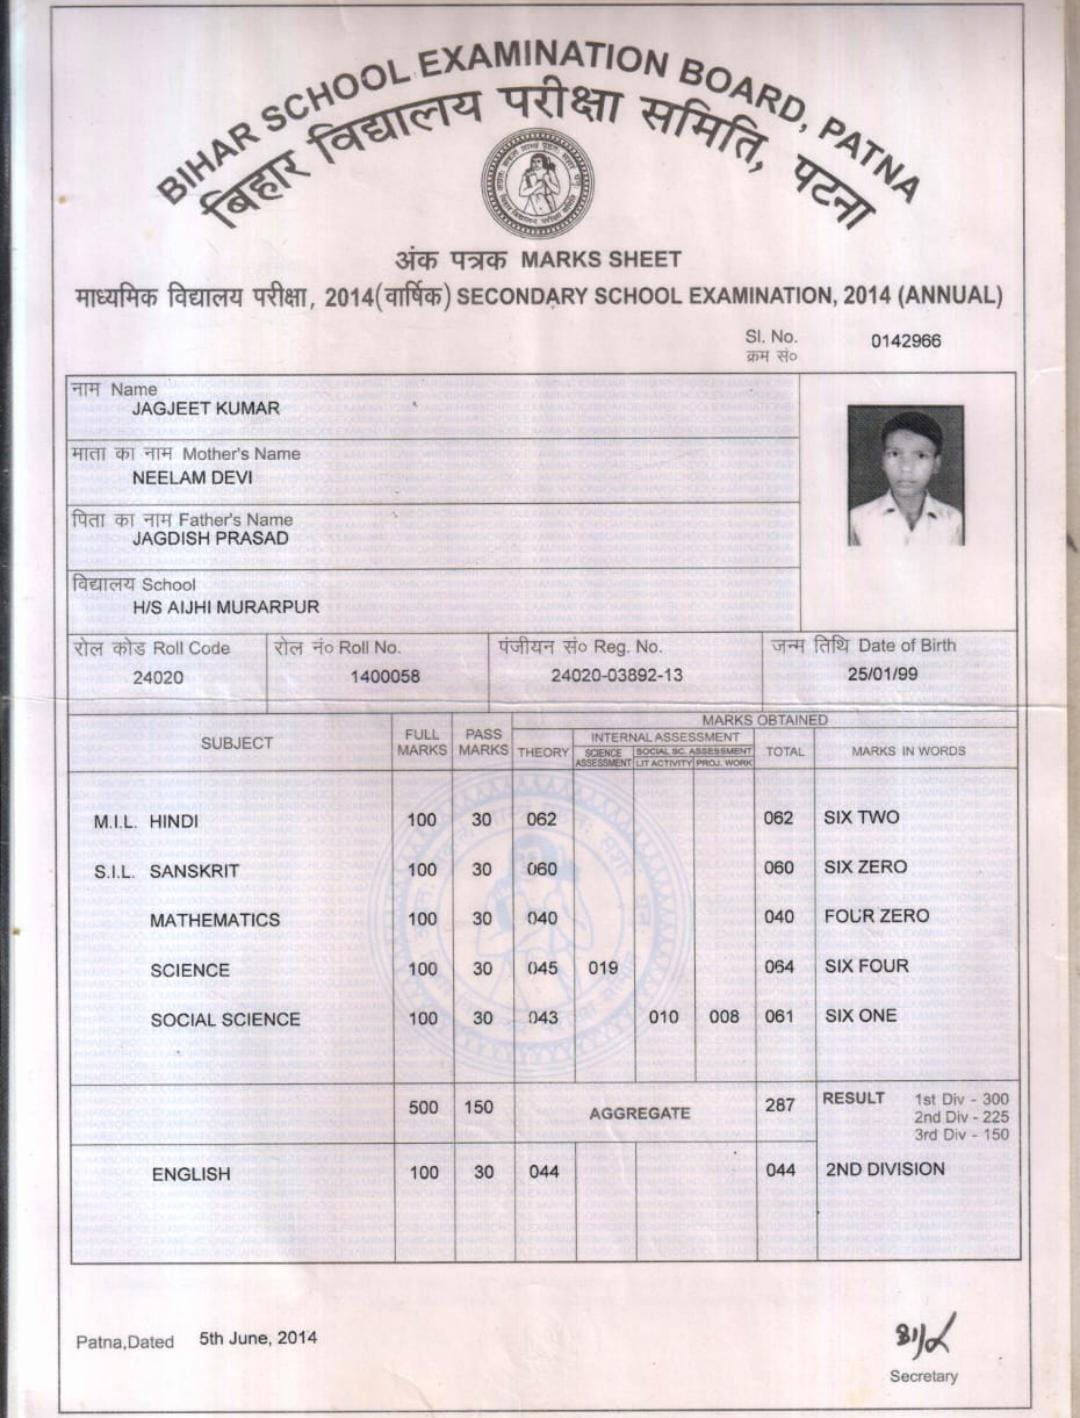 BIHAR SCHOOL EXAMINATION BOARD, PATNA
बिहार विद्यालय परीक्षा समिति, पटना
अंक पत्रक MARKS SHEET
माध्यमिक विद्यालय परीक्षा, 2014(वार्षिक) SECONDARY SCHOOL EXAMINATION, 2014 (ANNUAL)
Sl. No. 0142966
क्रम सं०
नाम Name
JAGJEET KUMAR
माता का नाम Mother's Name
NEELAM DEVI
पिता का नाम Father's Name
JAGDISH PRASAD
विद्यालय School
H/S AIJHI MURARPUR
रोल कोड Roll Code रोल नं० Roll No. पंजीयन सं० Reg. No. जन्म तिथि Date of Birth
24020 1400058 24020-03892-13 25/01/99
MARKS OBTAINED
SUBJECT FULL MARKS PASS MARKS THEORY INTERNAL ASSESSMENT TOTAL MARKS IN WORDS
SCIENCE ASSESSMENT SOCIAL SC. ASSESSMENT
LIT ACTIVITY PROJ. WORK
M.I.L. HINDI 100 30 062 062 SIX TWO
S.I.L. SANSKRIT 100 30 060 060 SIX ZERO
MATHEMATICS 100 30 040 040 FOUR ZERO
SCIENCE 100 30 045 019 064 SIX FOUR
SOCIAL SCIENCE 100 30 043 010 008 061 SIX ONE
500 150 AGGREGATE 287 RESULT 1st Div - 300
2nd Div - 225
3rd Div - 150
ENGLISH 100 30 044 044 2ND DIVISION
Patna,Dated 5th June, 2014
Secretary